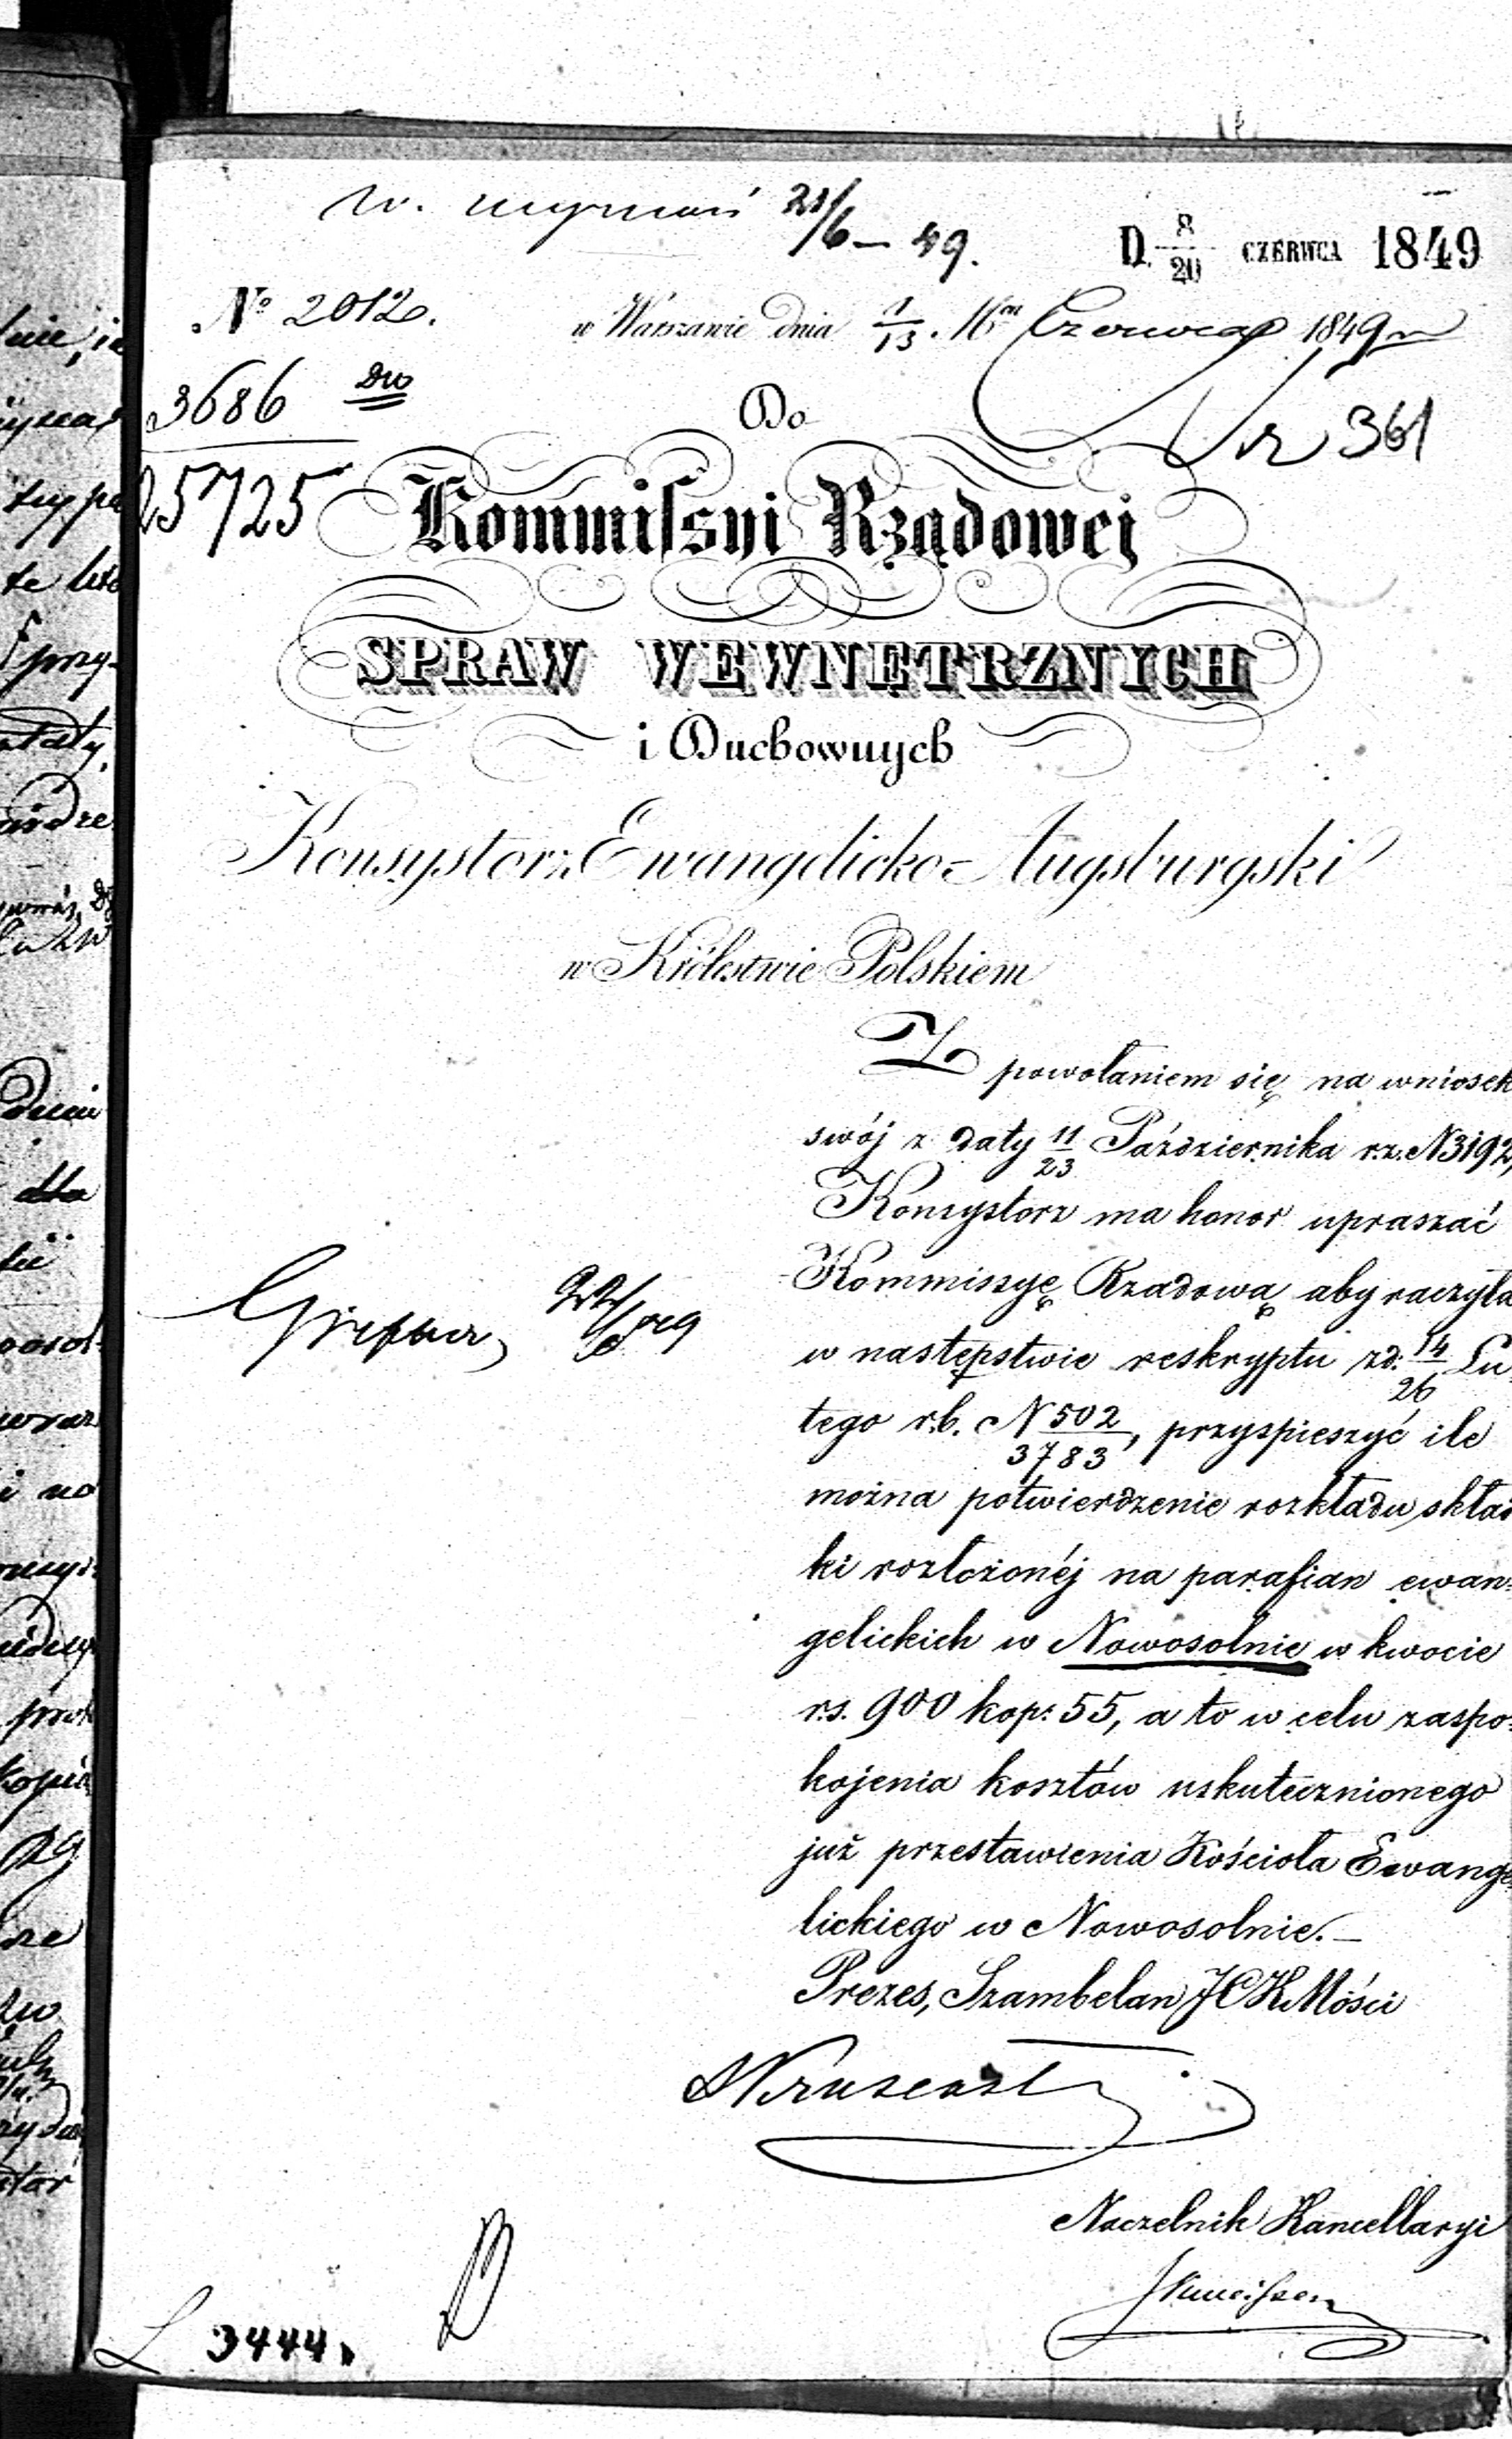 21/6 – 49.
D. 8/20 CZERWCA 1849
№ 2012.
w Warszawie dnia 1/13. Czerwca 1849 r
3686
25725
Nr 361
Do
Kommissyi Rządowej
SPRAW WEWNĘTRZNYCH
i Duchownych
Konsystorz Ewangelicko-Augsburgski
w Królestwie Polskiem
Z powołaniem się na wniosek
swój z daty 11/23 Października r.z. N 3192,
Konsystorz ma honor upraszać
Kommissyę Rządową aby raczyła
w następstwie reskryptu z d: 14/26 Lu
tego r.b. N 502/3783, przyspieszyć ile
można potwierdzenie rozkładu skład
ki rozłożonéj na parafian ewan=
gelickich w Nowosolnie w kwocie
r.s. 900 kop: 55, a to w celu zaspo=
kojenia kosztów uskutecznionego
już przestawienia Kościoła Ewange
lickiego w Nowosolnie. –
Prezes, Szambelan JCKMości
Naczelnik Kancellaryi
3444